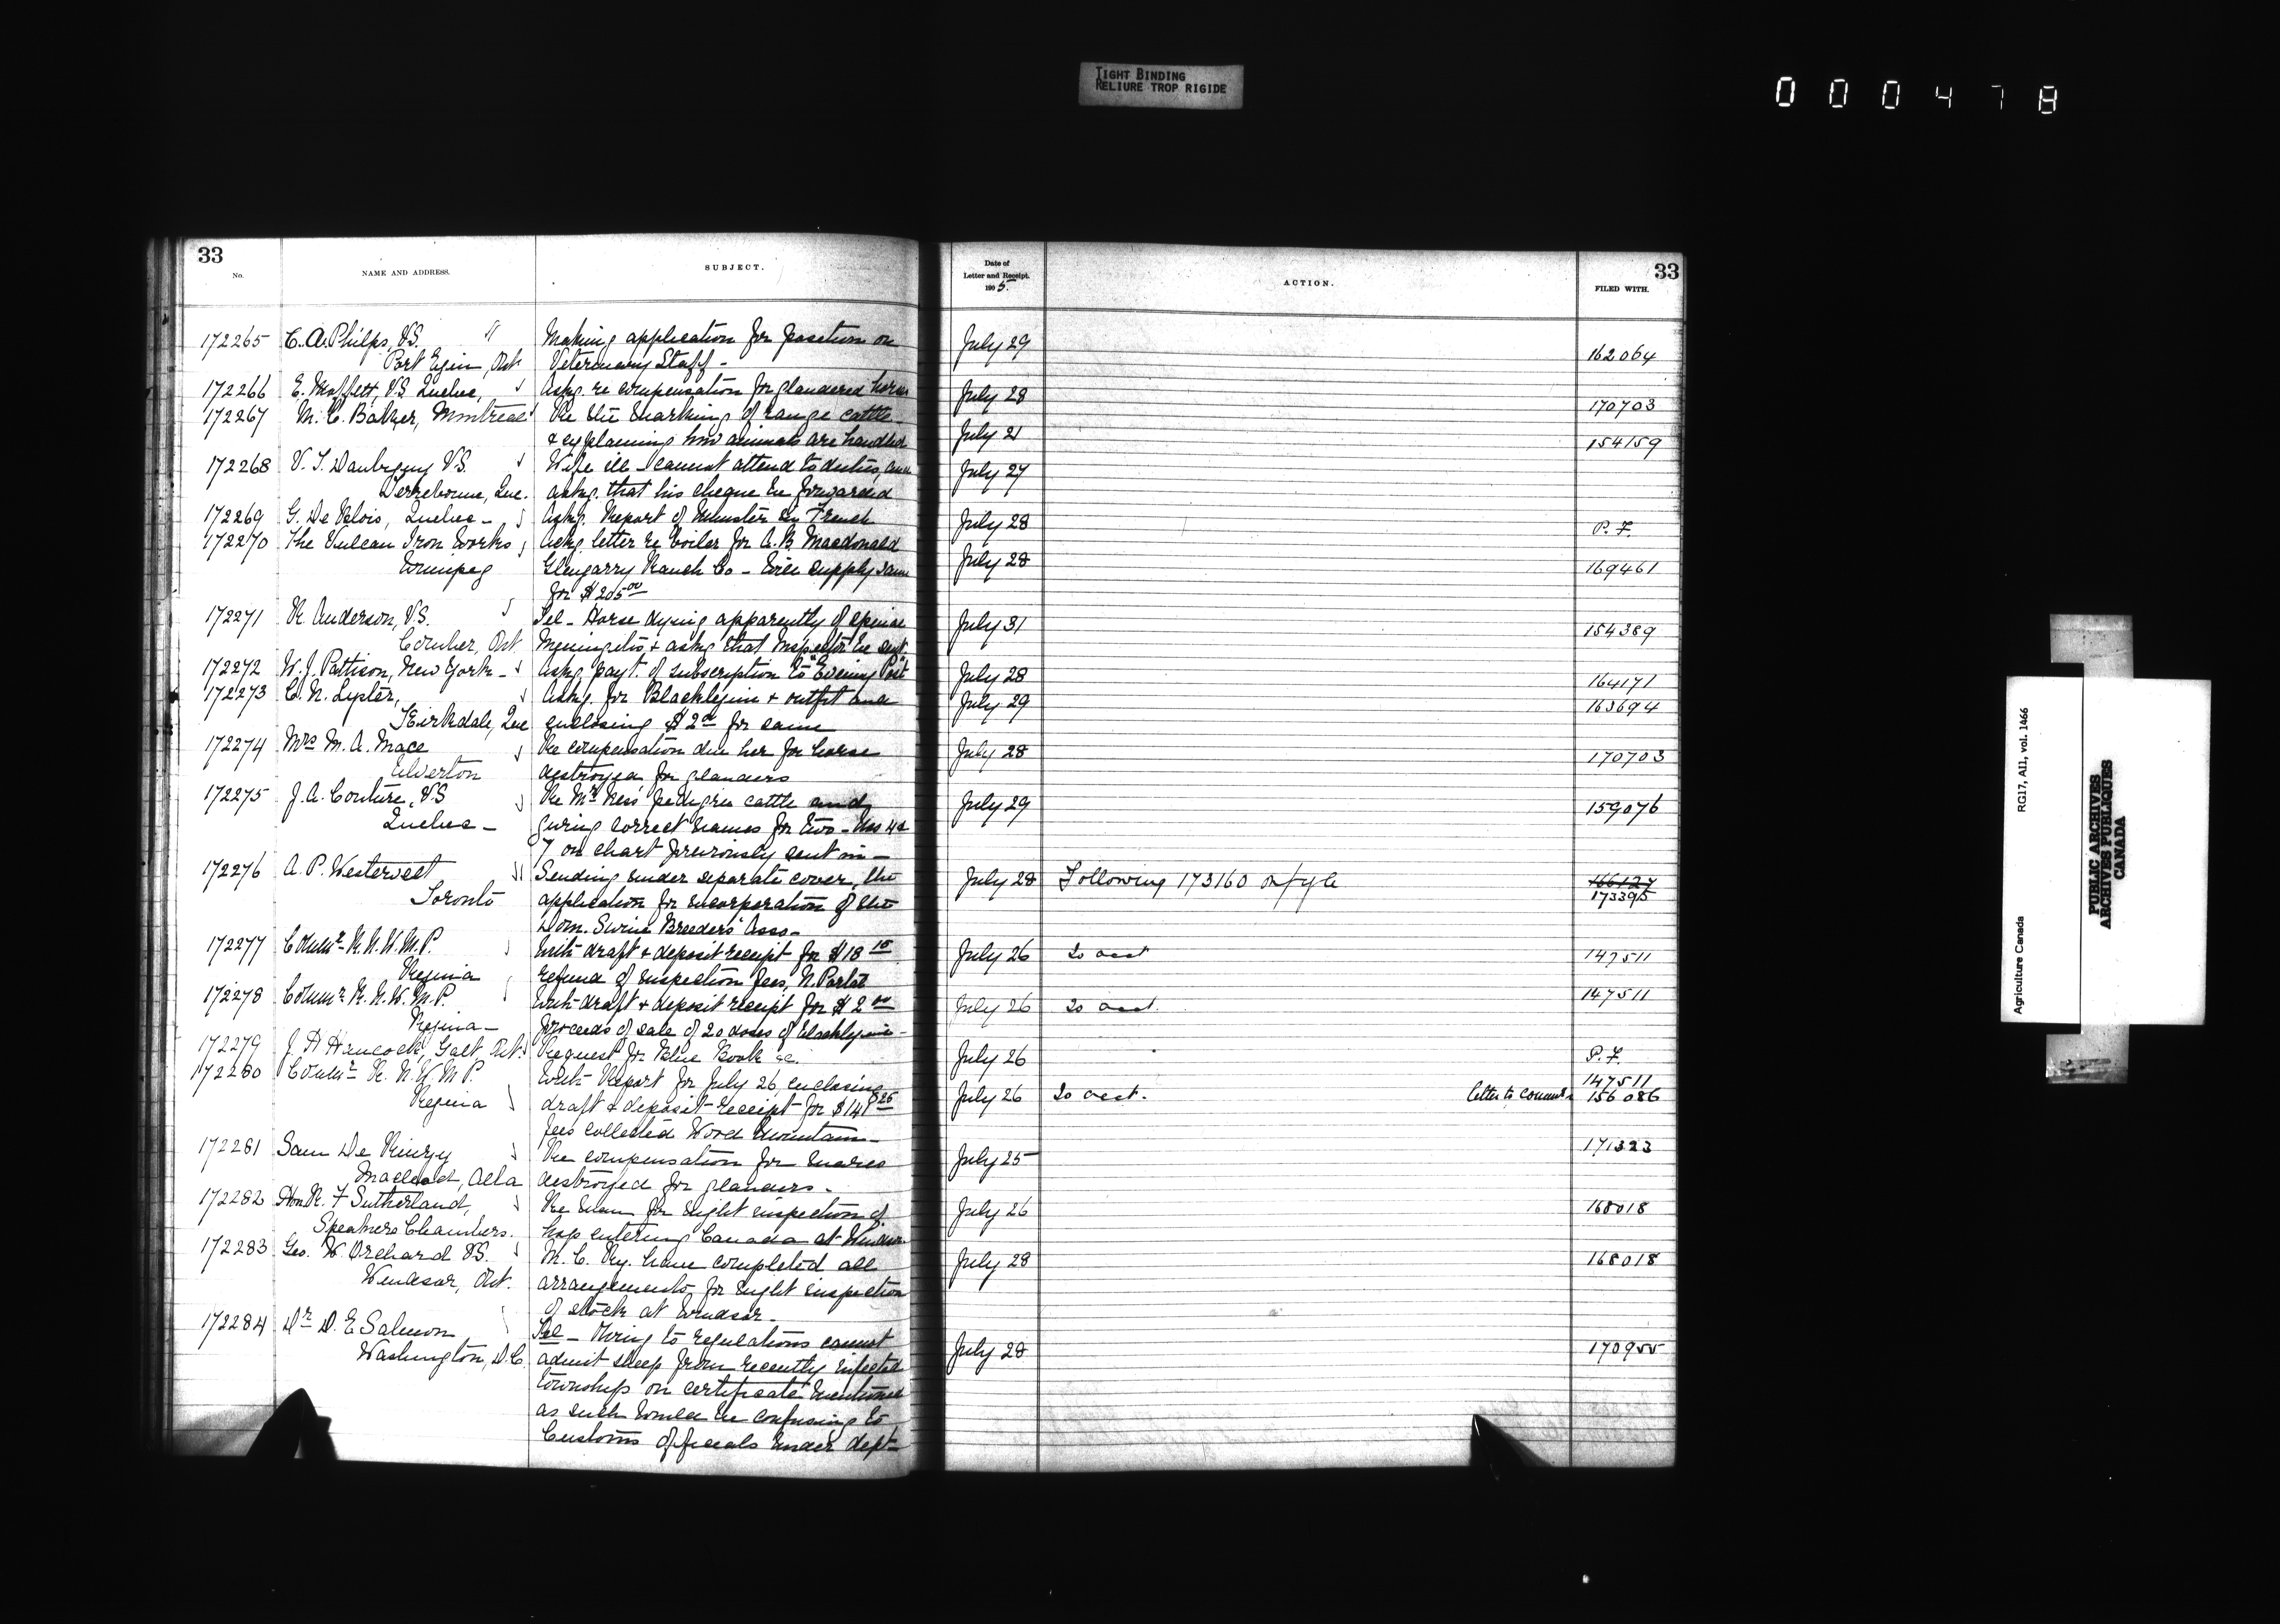 TIGHT BINDING
RELIURE TROP RIGIDE
000478
33
No.
NAME AND ADDRESS.
SUBJECT.
172265 C. A. Philps, V.S. " Making application for position on
Port Elgin, Ont Veterinary Staff -
172266 E. Moffett, V.S. Quebec, Askg. re compensation for glandered horses
172267 M. C. Baker, Montreal Re the marking of range cattle
& explaining how animals are handled
172268 V. T. Daubigny V.S. Wife ill - cannot attend to duties, and
Terrebonne, Que. askg. that his cheque be forwarded
172269 G. De Blois, Quebec - Askg. Report of Minister in French
172270 The Vulcan Iron Works, Askg. letter re boiler for A. B. Macdonald
Winnipeg Glengarry Ranch Co - Will supply same
for $205 00
172271 R. Anderson, V.S. Tel - Horse dying apparently of spinal
Comber, Ont. Meningitis & askg that Inspector be sent.
172272 W. J. Pattison, New York - Askg. payt. of subscription to "Evening Post"
172273 C. N. Lyster, Askg. for Blacklegine & outfit and
Kirkdale, Que enclosing $2 00 for same
172274 Mrs M. A. Mace Re compensation due her for horse
Elverton destroyed for glanders
172275 J. A. Couture, V.S Re Mr Ness' pedigree cattle and
Quebec - giving correct names for two - Nos 4 &
7 on chart previously sent in -
172276 A. P. Westervelt Sending under separate cover, the
Toronto application for incorporation of the
Dom. Swine Breeders' Asso -
172277 Commr R. N. W. M. P. With draft & deposit receipt for $18 15
Regina refund of inspection fees, N. Portal
172278 Commr R. N. W. M. P. With draft & deposit receipt for $2 00
Regina - proceeds of sale of 20 doses of blacklegine -
172279 J. H Hancock, Galt Ont. Request for Blue Book &c.
172280 Commr R. N. W M P. With Report for July 26, enclosing
Regina draft & deposit receipt for $148 25
fees collected Wood Mountain -
172281 Sam De Rinzy Re compensation for mares
Macleod, Alta destroyed for glanders -
172282 Hon R. F Sutherland, Re man for night inspection of
Speakers Chambers. hogs entering Canada at Windsor
172283 Geo. W. Orchard V.S. M. C. Ry. have completed all
Windsor, Ont. arrangements for night inspection
of stock at Windsor -
172284 Dr D. E Salmon Tel - Owing to regulations cannot
Washington, D.C. admit sheep from recently infected
townships on certificate mentioned
as such would be confusing to
Customs officials under dept
Date of
Letter and Receipt.
1905.
ACTION.
33
FILED WITH.
July 29 162064
July 28 170703
July 21 154159
July 27
July 28 P. F.
July 28 169461
July 31 154389
July 28 164171
July 29 163694
July 28 170703
July 29 159076
July 28 Following 173160 on fyle 166127
173395
July 26 To acct 147511
July 26 To acct. 147511
July 26 P. F.
147511
July 26 To acct. letter to commr 156086
July 25 171323
July 26 168018
July 28 168018
July 28 170955
Agriculture Canada RG17, AII, vol. 1466
PUBLIC ARCHIVES
ARCHIVES PUBLIQUES
CANADA